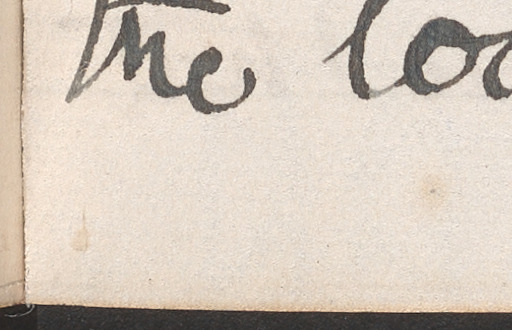 the loo